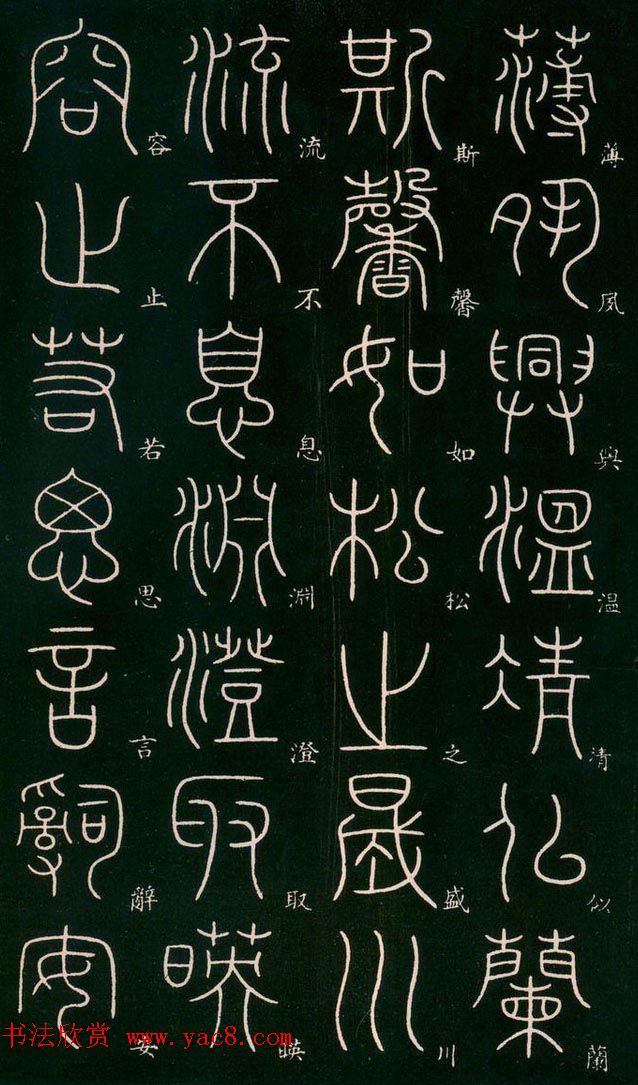 薄夙興温清似蘭
斯馨如松之盛川
流不息淵澄取暎
容止若思言辭安
书法欣赏 www.yac8.com